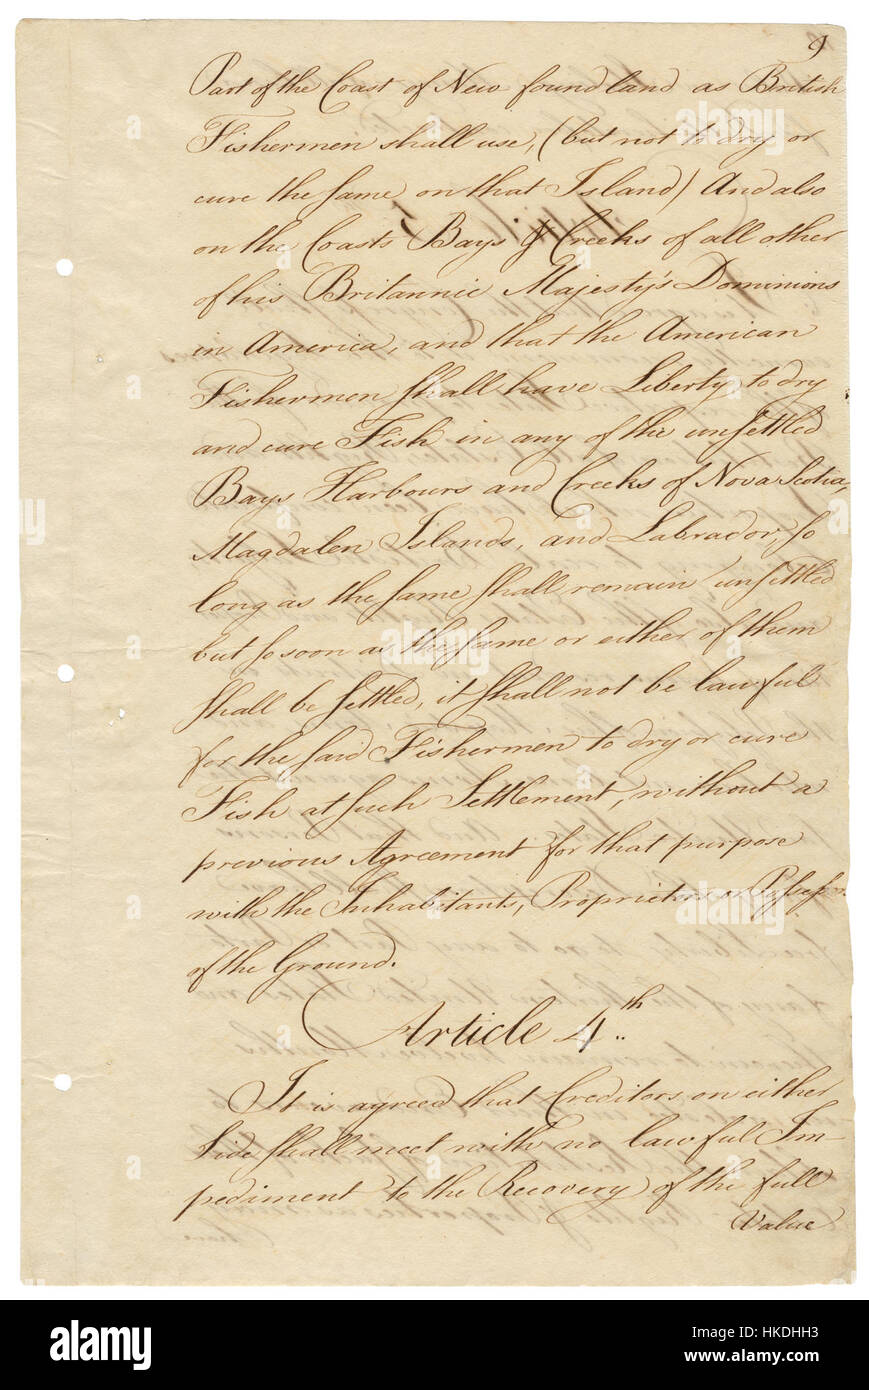 9
Part of the Coast of New found land as British
Fishermen shall use, (but not to dry or
cure the same on that Island) And also
on the Coasts Bays & Creeks of all other
of his Britannic Majesty's Dominions
in America, and that the American
Fishermen shall have Liberty to dry
and cure Fish in any of the unsettled
Bays Harbours and Creeks of Nova Scotia,
Magdalen Islands, and Labrador, so
long as the same shall remain unsettled
but so soon as the same or either of them
shall be settled, it shall not be lawful
for the said Fishermen to dry or cure
Fish at such Settlement, without a
previous Agreement for that purpose
with the Inhabitants, Proprietors or Possessors
of the Ground.
Article 4th..
It is agreed that Creditors on either
Side shall meet with no lawful Im-
pediment to the Recovery of the full
Value
a alamy
alamy
Image ID: HKDHH3
www.alamy.com